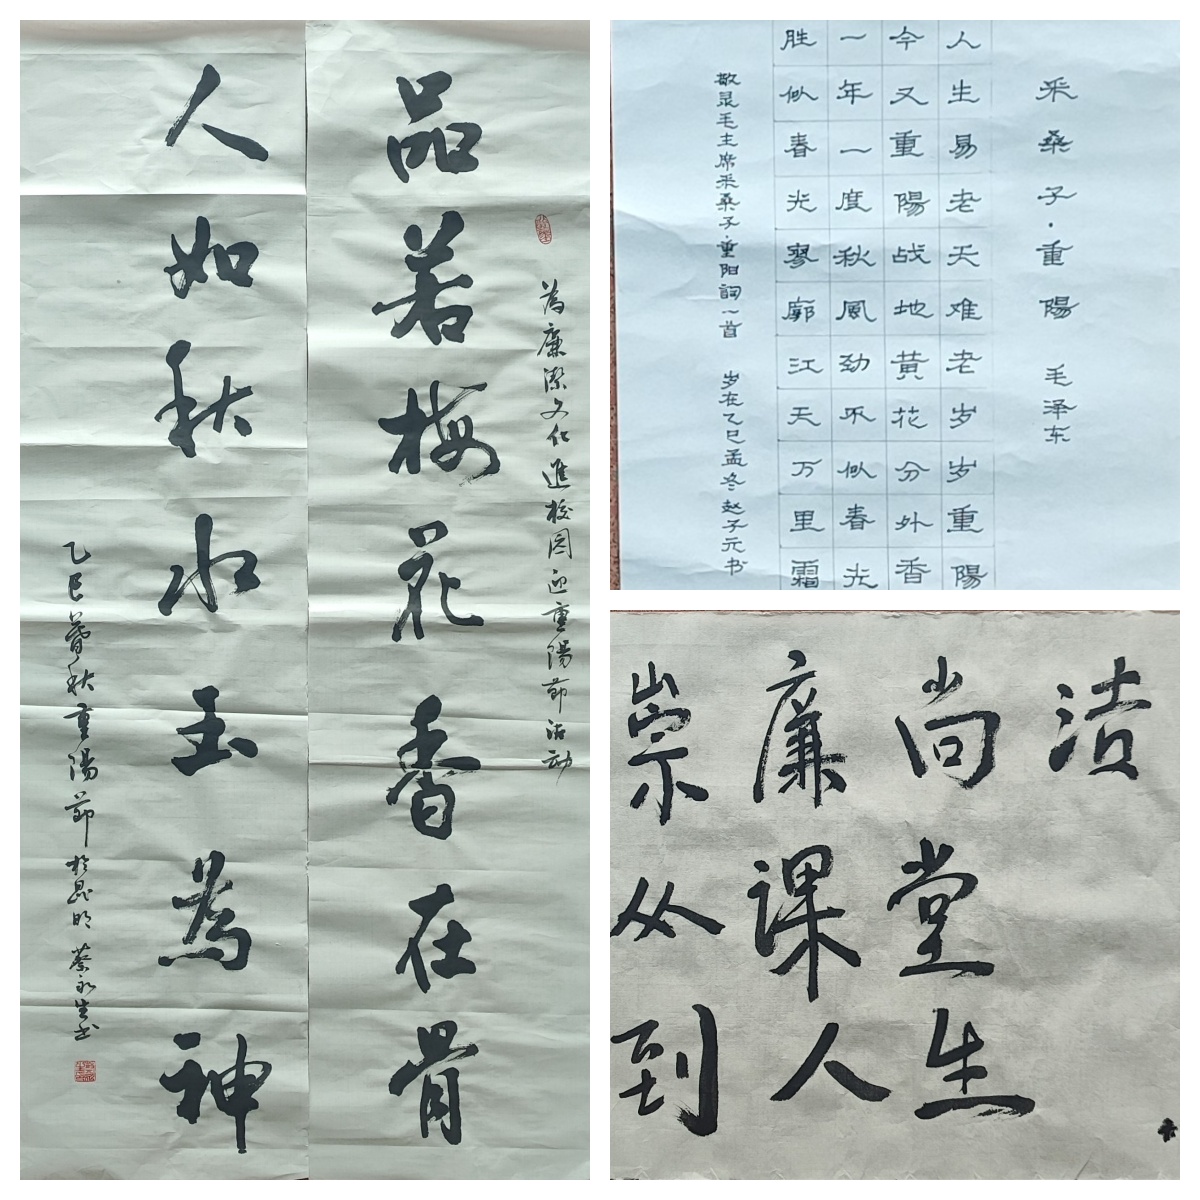 為廉潔文化進校园迎重陽節活动
品若梅花香在骨
人如秋水玉為神
乙巳暮秋重陽節於昆明蔡永生书
采桑子·重陽 毛泽东
人生易老天难老岁岁重陽
今又重陽战地黄花分外香
一年一度秋風劲不似春光
胜似春光寥廓江天万里霜
敬录毛主席采桑子重阳詞一首 岁在乙巳孟冬赵子元书
崇廉尚洁
从课堂
到人生